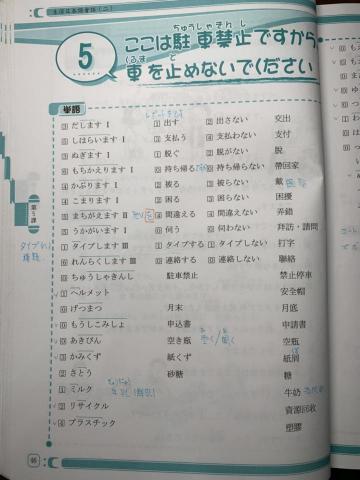 生活日本語會話(二)
5
ちゅうしゃきんし
ここは駐車禁止ですから
くるま と
車を止めないでください
単語
0 だします I 1 出す 2 出さない 交出
0 しはらいます I 3 支払う 4 支払わない 支付
0 ぬぎます I 1 脱ぐ 2 脱がない 脱
0 もちかえります I 0 持ち帰る 0 持ち帰らない 帶回家
0 かぶります I 2 被る 0 被らない 戴
0 こまります I 2 困る 0 困らない 困擾
0 まちがえます II 4 間違える 4 間違えない 弄錯
0 うかがいます I 0 伺う 0 伺わない 拜訪・請問
1 タイプします III 1 タイプする 1 タイプしない 打字
0 れんらくします III 0 連絡する 0 連絡しない 聯絡
0 ちゅうしゃきんし 駐車禁止 禁止停車
1 ヘルメット 安全帽
0 げつまつ 月末 月底
0 もうしこみしょ 申込書 申請書
0 あきびん 空き瓶 空瓶
0 かみくず 紙くず 紙屑
2 さとう 砂糖 糖
1 ミルク 牛奶
2 リサイクル 資源回收
4 プラスチック 塑膠
第5課
46